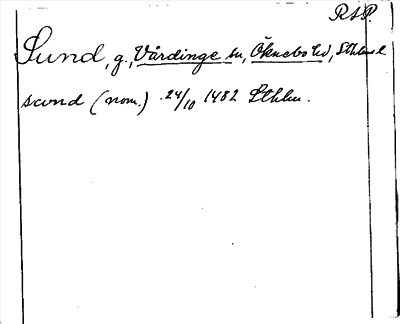 RAP.
Sund, g., Vårdinge sn, Öknebo hd, Sthlms l
swnd (nom.) 24/10 1482 Sthlm.